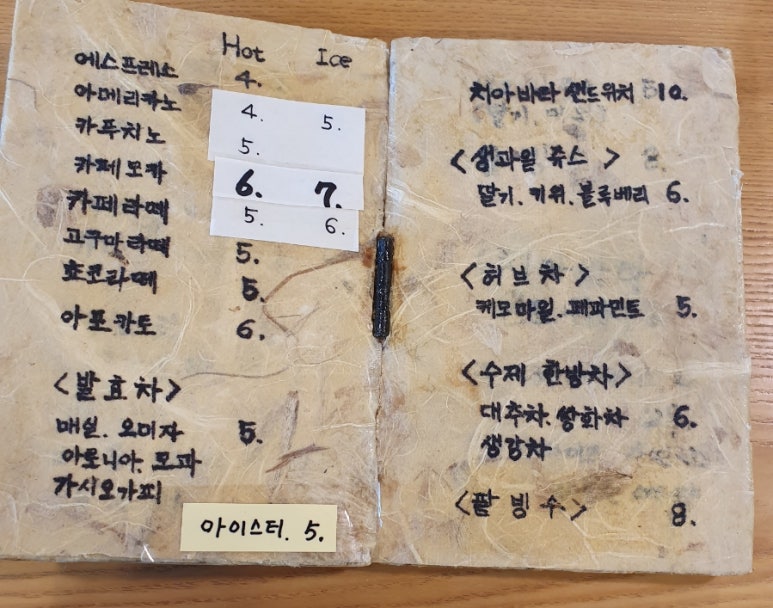 Hot Ice
에스프레소 4.
아메리카노 4. 5.
카푸치노 5.
카페모카 6. 7.
카페라떼 5. 6.
고구마라떼 5.
초코라떼 5.
아포카토 6.
<발효차>
매실. 오미자 5.
아로니아. 모과
가시오가피
아이스티. 5.
치아바타 샌드위치 10.
<생과일 쥬스>
딸기. 키위. 블루베리 6.
<허브차>
케모마일. 페파민트 5.
<수제 한방차>
대추차. 쌍화차 6.
생강차
<팥빙수> 8.